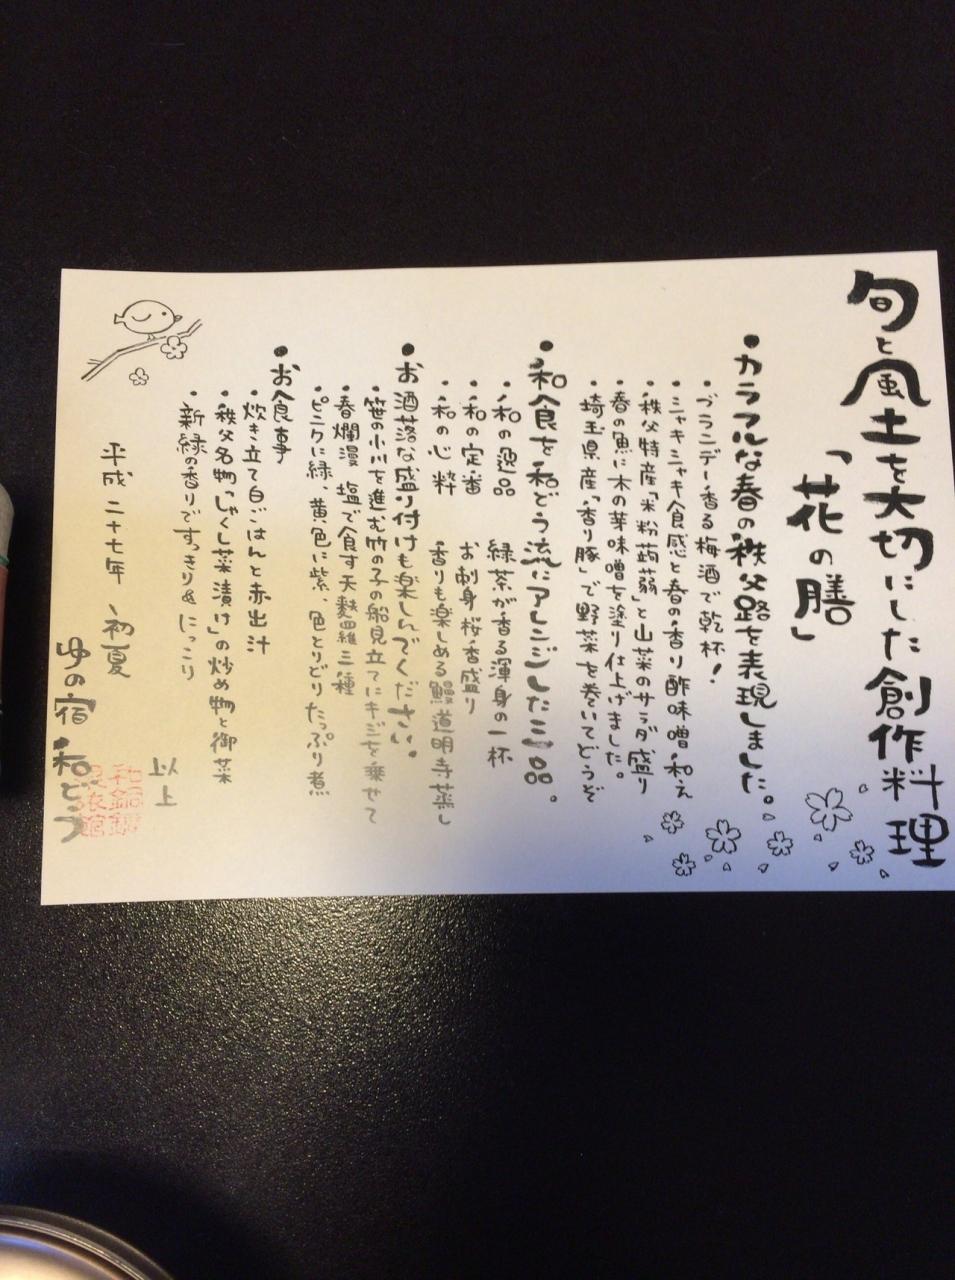 旬と風土を大切にした創作料理
「花の膳」
・カラフルな春の秩父路を表現しました。
・ブランデー香る梅酒で乾杯！
・シャキシャキ食感と春の香り酢味噌和え
・秩父特産「米粉蒟蒻」と山菜のサラダ盛り
・春の魚に木の芽味噌を塗り仕上げました。
・埼玉県産「香り豚」で野菜を巻いてどうぞ
・和食を和どう流にアレンジした三品。
・和の逸品 緑茶が香る渾身の一杯
・和の定番 お刺身桜香盛り
・和の心粋 香りも楽しめる鰻道明寺蒸し
・お洒落な盛り付けも楽しんでください。
笹の小川を進む竹の子の船見立てにキジを乗せて
・春爛漫 塩で食す天麩羅三種
・ピンクに緑、黄色に紫、色とりどりたっぷり煮
・お食事
・炊き立て白ごはんと赤出汁
・秩父名物「しゃくし菜漬け」の炒め物と御菜
・新緑の香りですっきり&にっこり
以上
平成二十七年 初夏
ゆの宿 和どう